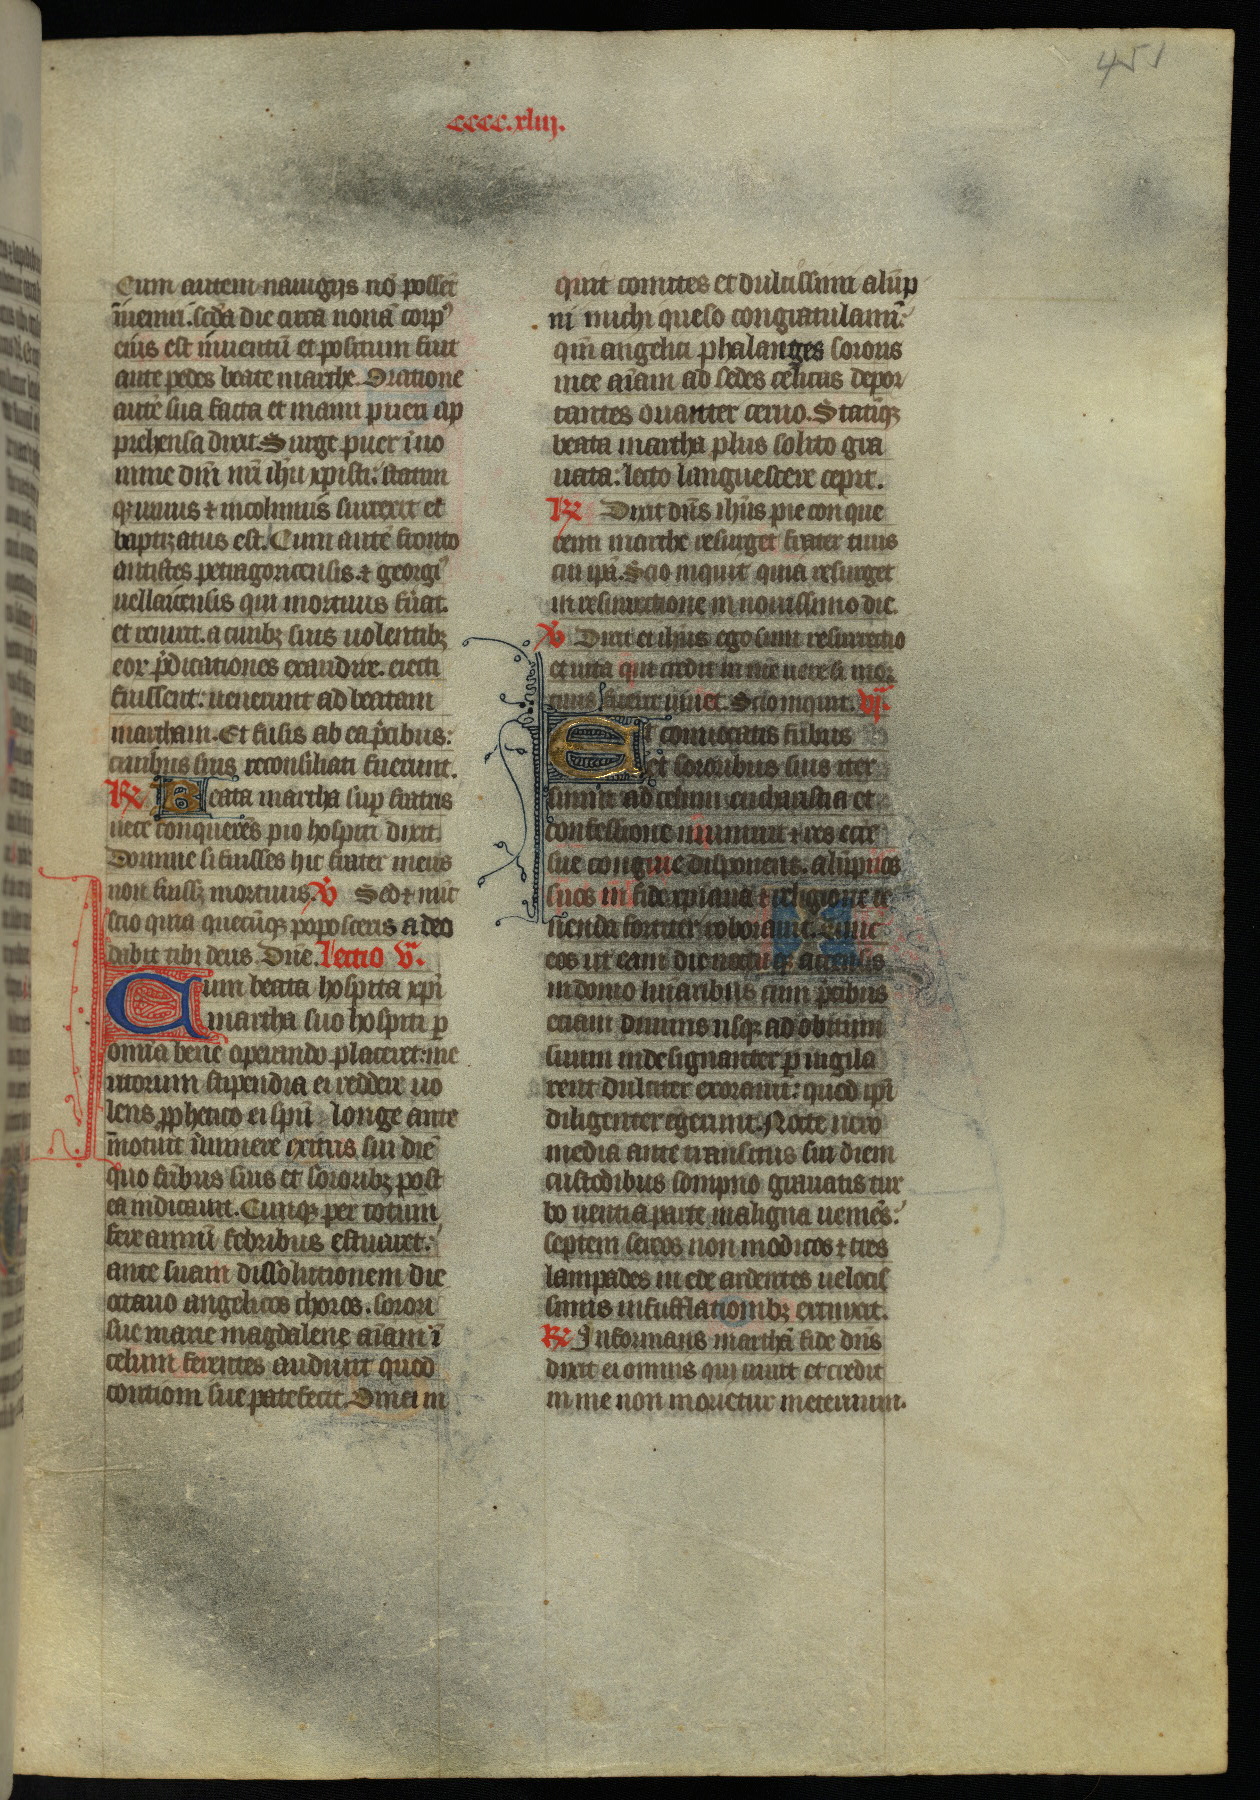 451
cccc.xliij.
Cum autem nauigijs nō possēt
īueniri. scd̄a die circa nonā corpꝰ
eius est inuentū et positum fuit
ante pedes beate marthe. Oratione
autē sua facta et manu pueri ap
prehensa dixit. Surge puer ī no
mine dn̄i nr̄i ih̄u xpisti: statim
qꝫ uiuus ⁊ incolumis surrexit et
baptizatus est. Cum autē fronto
antistes petragoricensis. ⁊ georgiꝰ
uellaicensis qui mortuus fuāt.
et reuixit. a ciuibꝫ suis uolentibꝫ
eoꝝ p̄dicationes exaudire. eiecti
fuissent: uenerunt ad beatam
martham. Et fusis ab ea p̄cibus:
ciuibus suis reconsiliati fuerunt.
℟ Beata martha sup̄ fratris
nece conquerēs pio hospiti dixit
Domine si fuisses hic frater meus
non fuissꝫ mortuus. ℣ Sed ⁊ nūc
scio quia quecūqꝫ poposceris a deo
dabit tibi deus. Dn̄e. Lectio v͛.
Cum beata hospita xp̄i
martha suo hospiti p̲
omīa bene operando placeret: me
ritorum stipendia ei reddere uo
lens ꝓphetico ei sp̄ū longe ante
īnotuit īminere exitus sui diē
quo frībus suis et sororibꝫ post
ea indicauit. Cumqꝫ per totum
fere annū febribus estuaret:
ante suam dissolutionem die
octauo angelicos choros. sorori
sue marie magdalene aīam ī
celum ferentes audiuit quod
contiom sue patefecit. O mei in
quit comites et dulcissimi alūp
ni michi queso congratulamī:
qm̄ angelici phalanges sororis
mee aīam ad sedes celicas depor
tantes ouanter cerno. Statīqꝫ
beata martha plus solito gra
uata: lecto languescere cepit.
℟ Dixit dn̄s ih̄us pie con que
renti marthe resurget frater tuus
cui ip̄a. Scio inquit quia resurget
in resurrectione in nouissimo die.
℣ Dixit ei ih̄us ego sum resurrectio
et uita qui credit in me uere si mor
tuus fuerit uiuet. Scio inquit. vj͛.
Et conuocatis frībus
et sororibus suis iter
suum ad celum eucharistia et
confessione muniuit ⁊ res eccl̄e
sue congrue disponens. alūpnos
suos in fide xp̄iana ⁊ religione te
nenda fortiter roborauit. Tunc
eos ut eam die noctuqꝫ accensis
in domo luīaribus cum p̄cibus
etiam diuinis usqꝫ ad obitum
suum indesignanter p̲uigila
rent dulciter exorauit: quod ip̄i
diligenter egerunt. Nocte uero
media ante transitus sui diem
custodibus sompno grauatis tur
bo uentia parte maligna ueniēs:
septem cereos non modicos ⁊ tres
lampades in ede ardentes uelocis
simis insufflationibꝫ extinxit.
℟ Informans marthā fide dn̄s
dixit ei omnis qui uiuit et credit
in me non morietur ineternum.